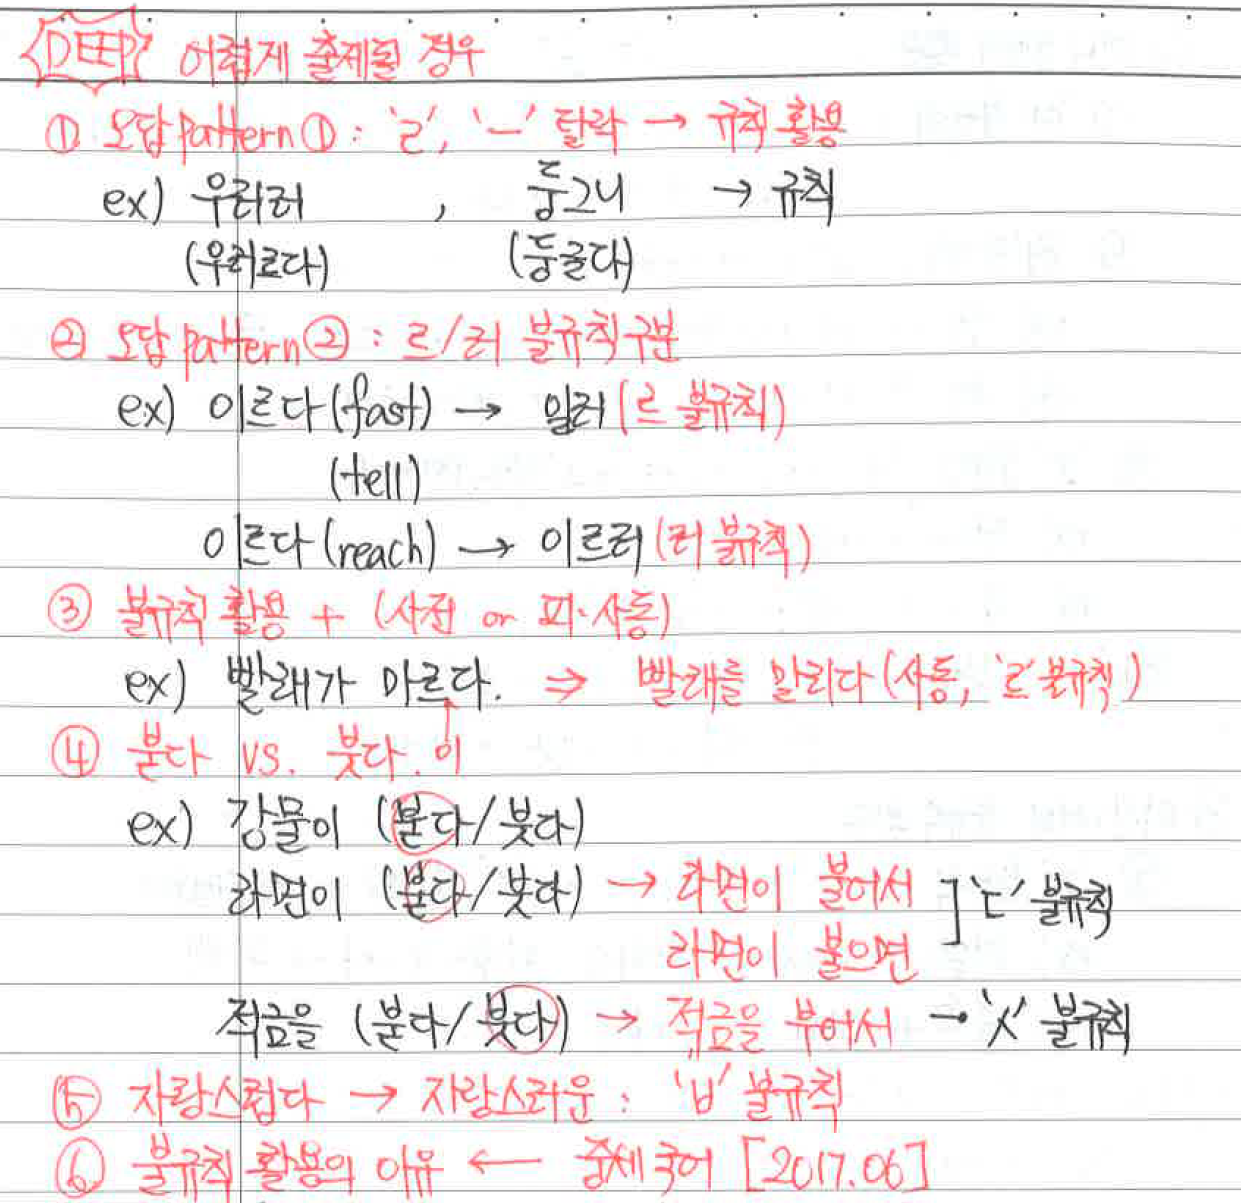 DEEP 어렵게 출제될 경우
① 오답 pattern① : 'ㄹ', 'ㅡ' 탈락 → 규칙 활용
ex) 우러러 , 둥그니 → 규칙
(우러르다) (둥글다)
② 오답 pattern② : 르/러 불규칙 구분
ex) 이르다(fast) → 일러 (르 불규칙)
(tell)
이르다(reach) → 이르러 (러 불규칙)
③ 불규칙 활용 + (사전 or 피·사동)
ex) 빨래가 마르다. ⇒ 빨래를 말리다 (사동, '르' 불규칙)
④ 붇다 vs. 붓다. 이
ex) 강물이 (붇다/붓다)
라면이 (붇다/붓다) → 라면이 불어서 ] 'ㄷ' 불규칙
라면이 불으면
적금을 (붇다/붓다) → 적금을 부어서 → 'ㅅ' 불규칙
⑤ 자랑스럽다 → 자랑스러운 : 'ㅂ' 불규칙
⑥ 불규칙 활용의 이유 ← 중세 국어 [2017.06]